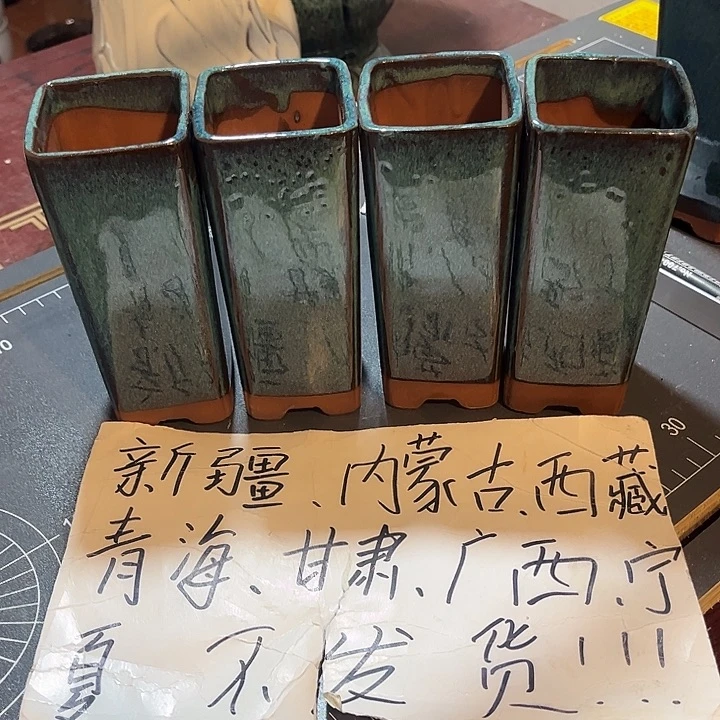 新疆、内蒙古、西藏
青海、甘肃、广西、宁
夏 不发货!!!
30